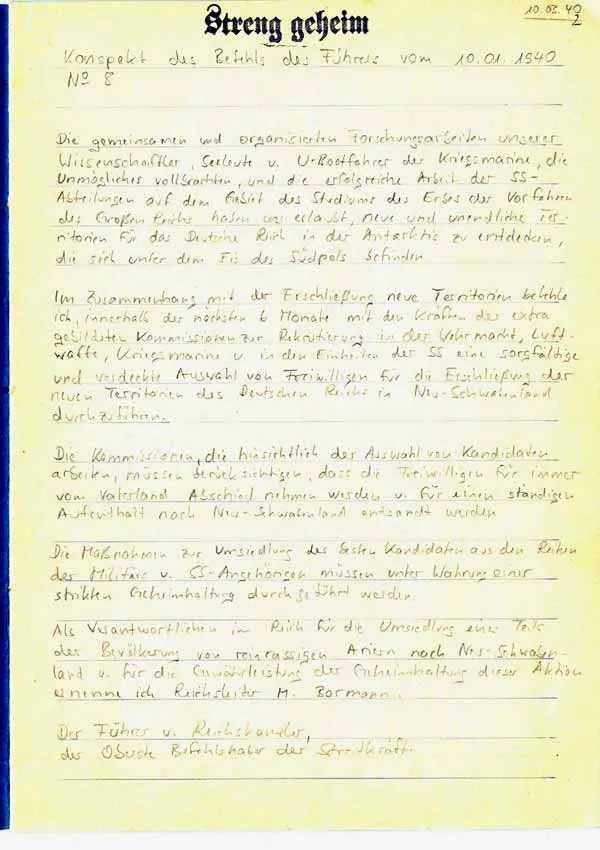 10.03.40
2
Streng geheim
Konspekt des Befehls des Führers vom 10.01.1940
№ 8
Die gemeinsamen und organisierten Forschungsarbeiten unserer
Wissenschaftler, Seeleute u. U-Bootfahrer der Kriegsmarine, die
Unmögliches vollbrachten, und die erfolgreiche Arbeit der SS-
Abteilungen auf dem Gebiet des Studiums des Erbes der Vorfahren
des Großen Reichs haben uns erlaubt, neue und unendliche Ter-
ritorien für das Deutsche Reich in der Antarktis zu entdecken,
die sich unter dem Eis des Südpols befinden
Im Zusammenhang mit der Erschließung neue Territorien befehle
ich, innerhalb der nächsten 6 Monate mit den Kräften des extra
gebildeten Kommissionen zur Rekrutierung in der Wehrmacht, Luft-
waffe, Kriegsmarine u. in den Einheiten der SS eine sorgfältige
und verdeckte Auswahl von Freiwilligen für die Erschließung der
neuen Territorien des Deutschen Reichs in Neu-Schwabenland
durchzuführen.
Die Kommissionen, die hinsichtlich der Auswahl von Kandidaten
arbeiten, müssen berücksichtigen, dass die Freiwilligen für immer
vom Vaterland Abschied nehmen werden u. für einen ständigen
Aufenthalt nach Neu-Schwabenland entsandt werden
Die Maßnahmen zur Umsiedlung der besten Kandidaten aus den Reihen
der Militärs u. SS-Angehörigen müssen unter Wahrung einer
strikten Geheimhaltung durchgeführt werden.
Als Verantwortlichen im Reich für die Umsiedlung eines Teils
der Bevölkerung von reinrassigen Ariern nach Neu-Schwaben-
land u. für die Gewährleistung der Geheimhaltung dieser Aktion
ernenne ich Reichsleiter M. Bormann.
Der Führer u. Reichskanzler,
der Oberste Befehlshaber der Streitkräfte